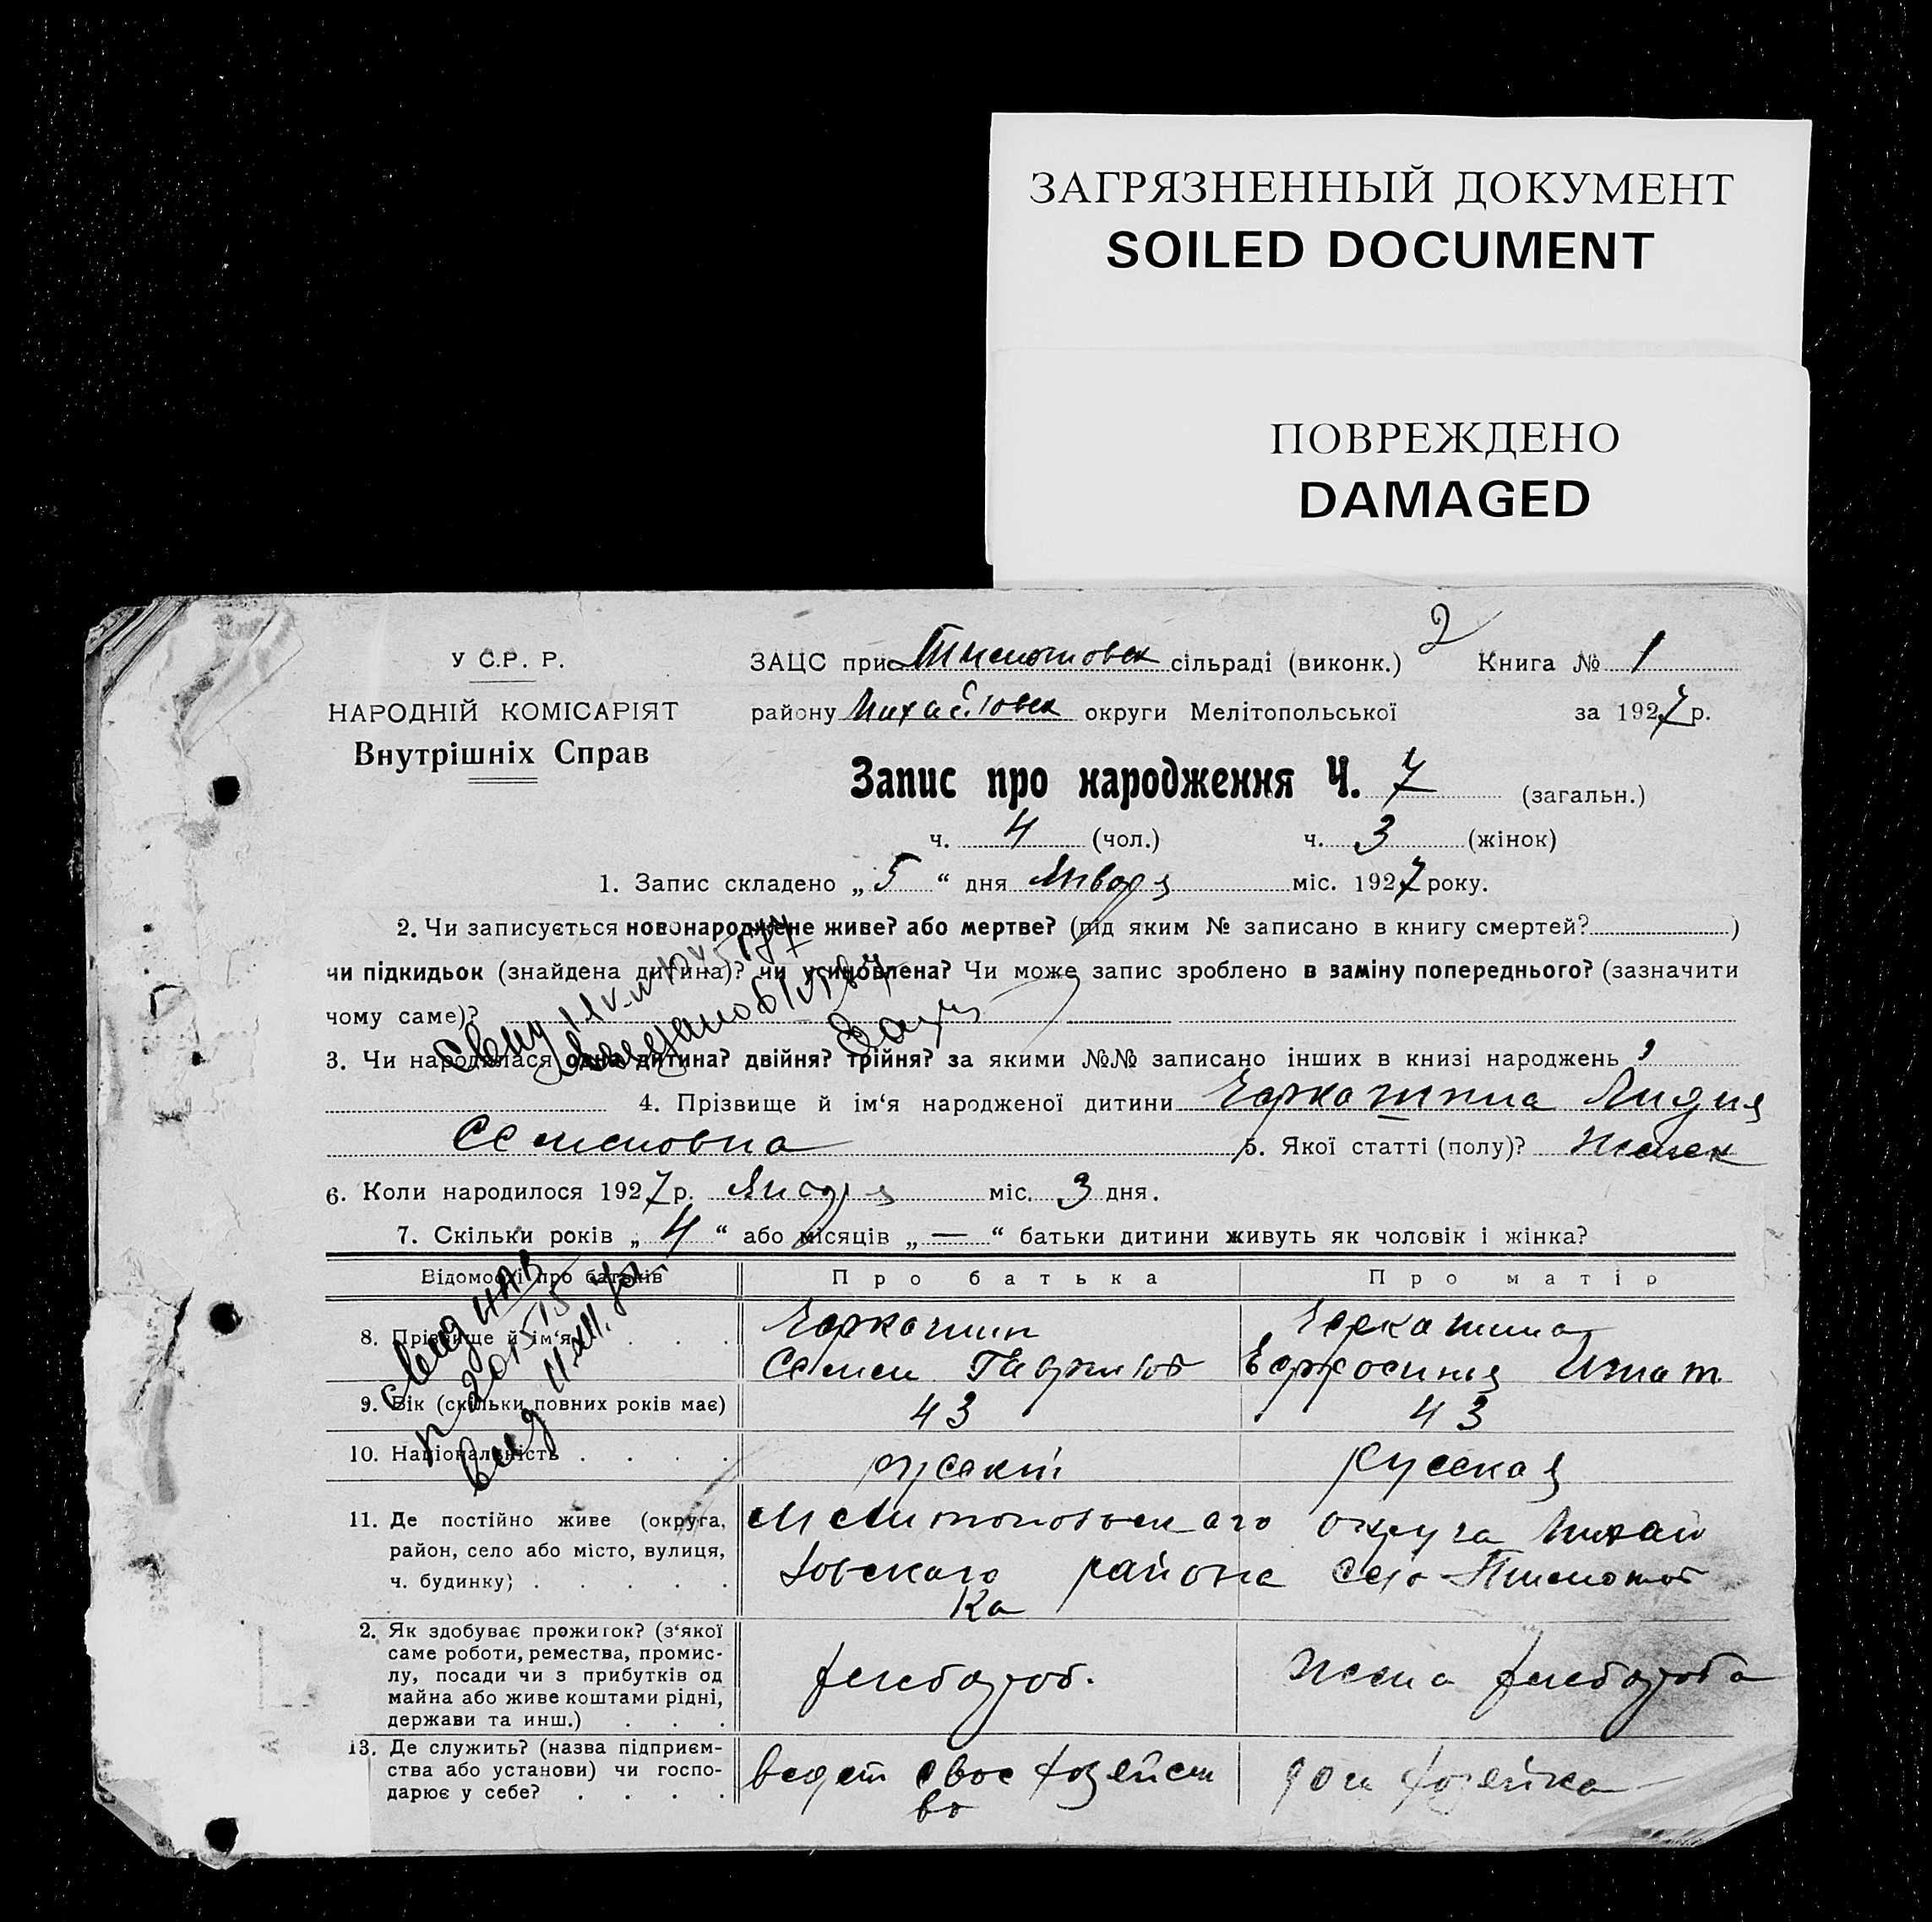 ЗАГРЯЗНЕННЫЙ ДОКУМЕНТ
SOILED DOCUMENT
ПОВРЕЖДЕНО
DAMAGED
2
У С.Р. Р.
ЗАЦС при Тимошовск сільраді (виконк.) Книга № 1
НАРОДНІЙ КОМІСАРІЯТ
району Михайловск округи Мелітопольської за 1927 р.
Внутрішніх Справ
Запис про народження Ч. 7 (загальн.)
ч. 4 (чол.) ч. 3 (жінок)
1. Запис складено „ 5 “ дня Января міс. 1927 року.
2. Чи записується новонароджене живе? або мертве? (під яким № записано в книгу смертей? )
чи підкидьок (знайдена дитина)? чи усиновлена? Чи може запис зроблено в заміну попереднього? (зазначити
чому саме)?
3. Чи народилася одна дитина? двійня? трійня? за якими №№ записано інших в книзі народжень
4. Прізвище й ім‘я народженої дитини Черкашина Лидия
Семеновна 5. Якої статті (полу)? Женск
6. Коли народилося 1927 р. Января міс. 3 дня.
7. Скільки років „ 4 “ або місяців „ — “ батьки дитини живуть як чоловік і жінка?
Відомості про батьків Про батька Про матір
8. Прізвище й ім‘я . . . Черкашин Черкашина
Семен Гаврилов Ефросиния Игнат
9. Вік (скільки повних років має) 43 43
10. Національність . . . . русский русская
11. Де постійно живе (округа, Мелитопольскаго округа Михай
район, село або місто, вулиця, ловскаго района село Тимошов
ч. будинку) . . . . . ка
2. Як здобуває прожиток? (з‘якої
саме роботи, ремества, промис-
лу, посади чи з прибутків од хлебороб. жена хлебороба
майна або живе коштами рідні,
держави та инш.) . . .
13. Де служить? (назва підприєм-
ства або установи) чи госпо- ведет свое хозяйст дом хозяйка
дарює у себе? . . . . во